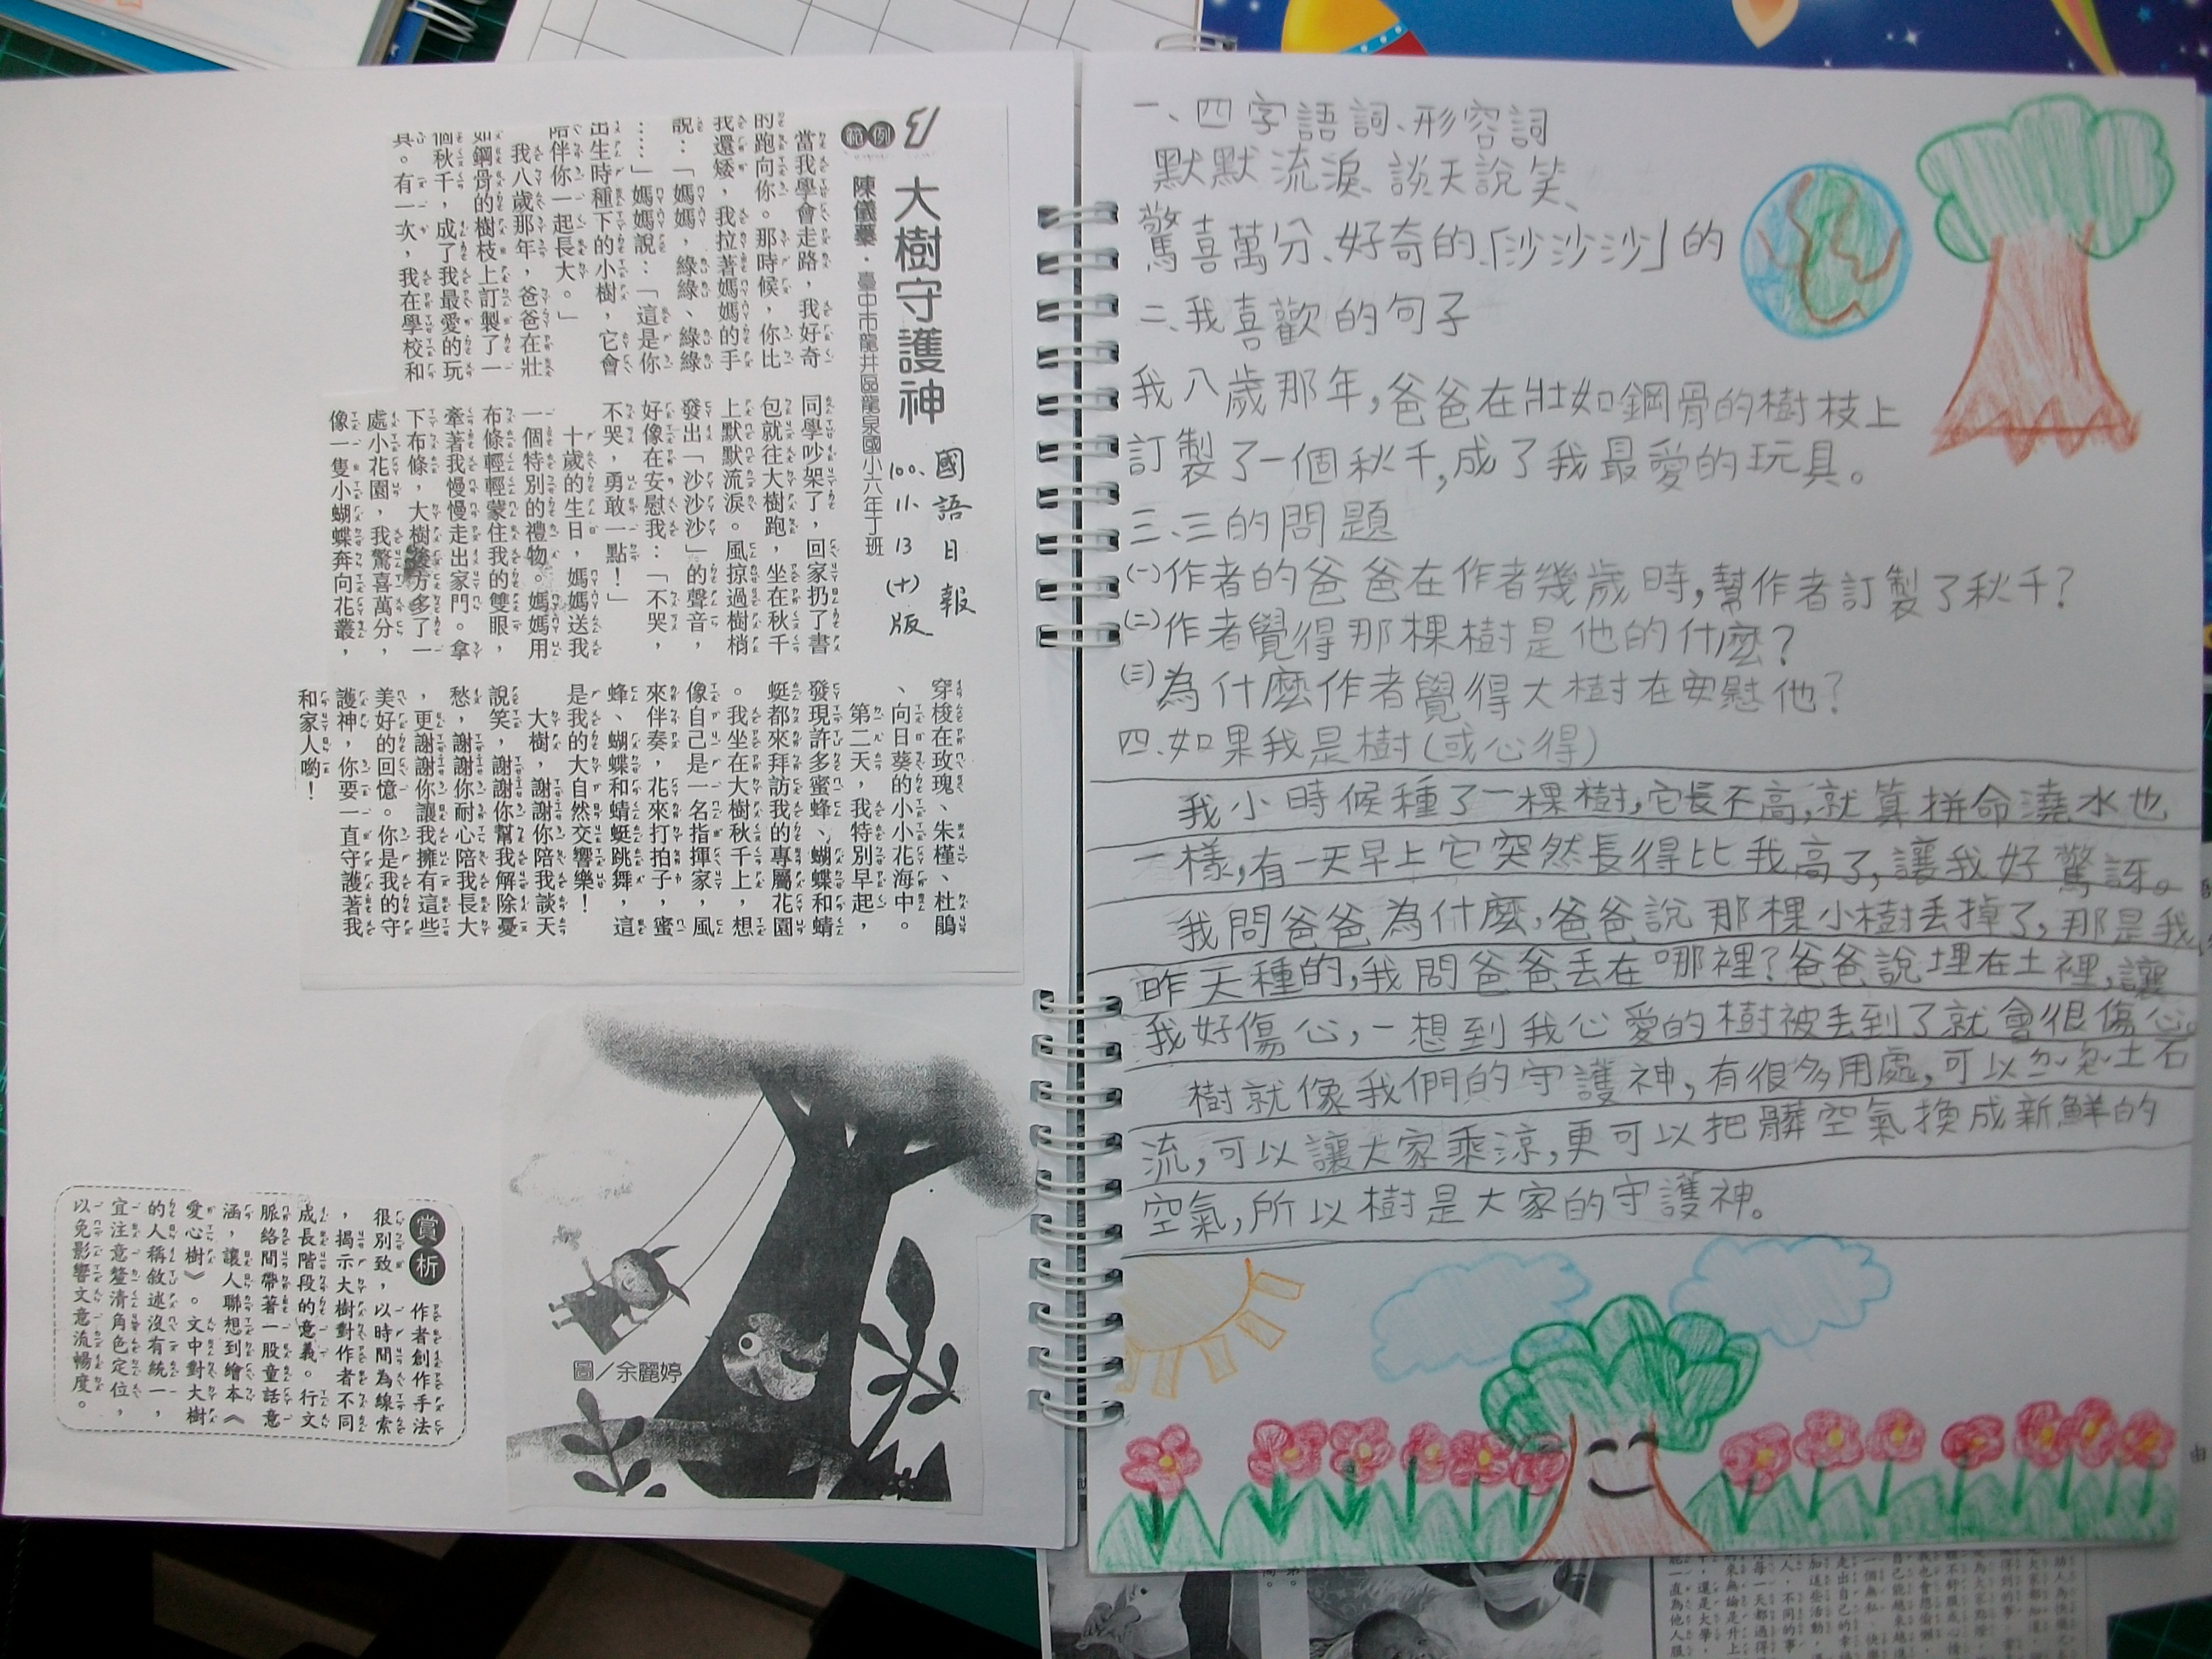 範例
大樹守護神
國語日報
100.11.13(十)版
陳儀蓁・臺中市龍井區龍泉國小六年丁班
當我學會走路,我好奇
的跑向你。那時候,你比
我還矮,我拉著媽媽的手
說:「媽媽,綠綠、綠綠
……」媽媽說:「這是你
出生時種下的小樹,它會
陪伴你一起長大。」
我八歲那年,爸爸在壯
如鋼骨的樹枝上訂製了一
個秋千,成了我最愛的玩
具。有一次,我在學校和
同學吵架了,回家扔了書
包就往大樹跑,坐在秋千
上默默流淚。風掠過樹梢
發出「沙沙沙」的聲音,
好像在安慰我:「不哭,
不哭,勇敢一點!」
十歲的生日,媽媽送我
一個特別的禮物。媽媽用
布條輕輕蒙住我的雙眼,
牽著我慢慢走出家門。拿
下布條,大樹後方多了一
處小花園,我驚喜萬分,
像一隻小蝴蝶奔向花叢,
穿梭在玫瑰、朱槿、杜鵑
、向日葵的小小花海中。
第二天,我特別早起,
發現許多蜜蜂、蝴蝶和蜻
蜓都來拜訪我的專屬花園
。我坐在大樹秋千上,想
像自己是一名指揮家,風
來伴奏,花來打拍子,蜜
蜂、蝴蝶和蜻蜓跳舞,這
是我的大自然交響樂!
大樹,謝謝你陪我談天
說笑,謝謝你幫我解除憂
愁,謝謝你耐心陪我長大
,更謝謝你讓我擁有這些
美好的回憶。你是我的守
護神,你要一直守護著我
和家人喲!
圖/余麗婷
賞析
作者創作手法
很別致,以時間為線索
,揭示大樹對作者不同
成長階段的意義。行文
脈絡間帶著一股童話意
涵,讓人聯想到繪本《
愛心樹》。文中對大樹
的人稱敘述沒有統一,
宜注意釐清角色定位,
以免影響文意流暢度。
一、四字語詞、形容詞
默默流淚、談天說笑、
驚喜萬分、好奇的、「沙沙沙」的
二、我喜歡的句子
我八歲那年,爸爸在壯如鋼骨的樹枝上
訂製了一個秋千,成了我最愛的玩具。
三、三的問題
(一)作者的爸爸在作者幾歲時,幫作者訂製了秋千?
(二)作者覺得那棵樹是他的什麼?
(三)為什麼作者覺得大樹在安慰他?
四、如果我是樹(或心得)
我小時候種了一棵樹,它長不高,就算拼命澆水也
一樣,有一天早上它突然長得比我高了,讓我好驚訝。
我問爸爸為什麼,爸爸說那棵小樹丟掉了,那是我
昨天種的,我問爸爸丟在哪裡?爸爸說埋在土裡,讓
我好傷心,一想到我心愛的樹被丟到了就會很傷心。
樹就像我們的守護神,有很多用處,可以土石
流,可以讓大家乘涼,更可以把髒空氣換成新鮮的
空氣,所以樹是大家的守護神。